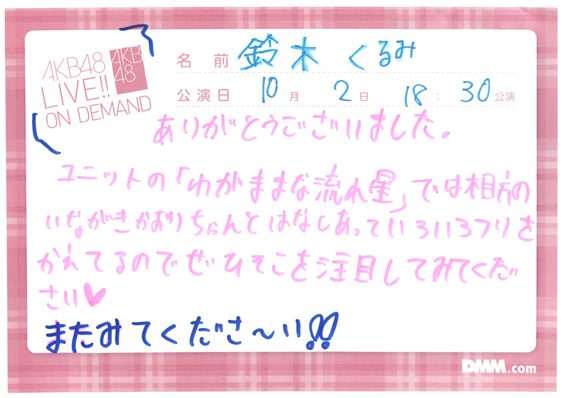 AKB48
LIVE!!
ON DEMAND
AKB
48
名前 鈴木 くるみ
公演日 10月 2日 18:30公演
ありがとうございました。
ユニットの「わがままな流れ星」では相方の
いながきかおりちゃんとはなしあっていろいろフリを
かえてるのでぜひそこを注目してみてくだ
さい♥
またみてくださ〜い!!
DMM.com